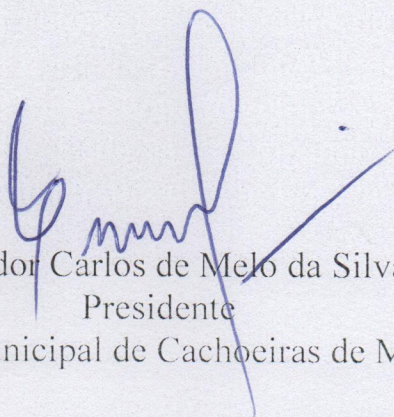 dor Carlos de Melo da Silva
Presidente
nicipal de Cachoeiras de M